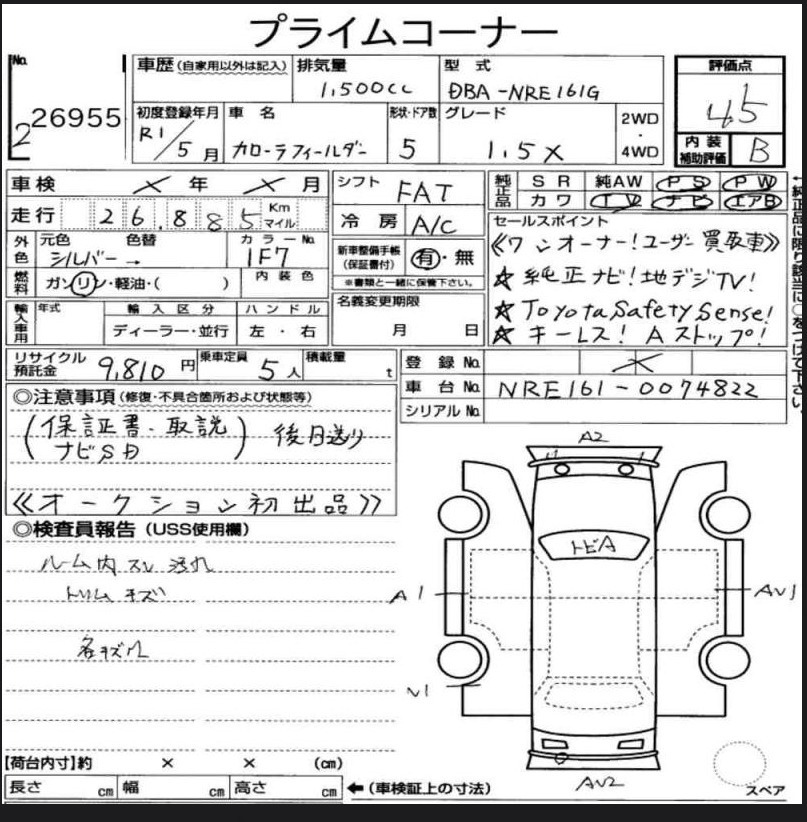 プライムコーナー
No.
2 26955
車歴 (自家用以外は記入)
排気量
1,500cc
型式
DBA-NRE161G
評価点
4.5
初度登録年月
R1/5月
車名
カローラフィールダー
形状・ドア数
5
グレード
1.5X
2WD
・
4WD
内装
補助評価
B
車検 × 年 × 月
シフト FAT
純正品 SR 純AW PS PW
カワ TV ナビ エアB
走行 26,885 Km
マイル
冷房 A/C
セールスポイント
《ワンオーナー!ユーザー買取車》
★純正ナビ!地デジTV!
★Toyota Safety Sense!
★キーレス! Aストップ!
外色 元色 色替 カラーNo.
シルバー → 1F7
新車整備手帳
(保証書付) 有・無
※書類と一緒に保管下さい。
燃料 ガソリン・軽油・( ) 内装色
輸入車用 年式 輸入区分 ハンドル
ディーラー・並行 左・右
名義変更期限
月 日
リサイクル
預託金 9,810円
乗車定員 5人
積載量 t
登録No. ×
車台No. NRE161-0074822
シリアルNo.
←純正品に限り該当に○をつけて下さい
◎注意事項 (修復・不具合箇所および状態等)
(保証書・取説
ナビSD) 後日送り
《オークション初出品》
◎検査員報告 (USS使用欄)
ルーム内 スレ 汚れ
トリム キズ
各キズ凹
A2
トビA
A1
AU1
U1
AU2
スペア
【荷台内寸】約 × × (cm)
長さ cm 幅 cm 高さ cm ←(車検証上の寸法)